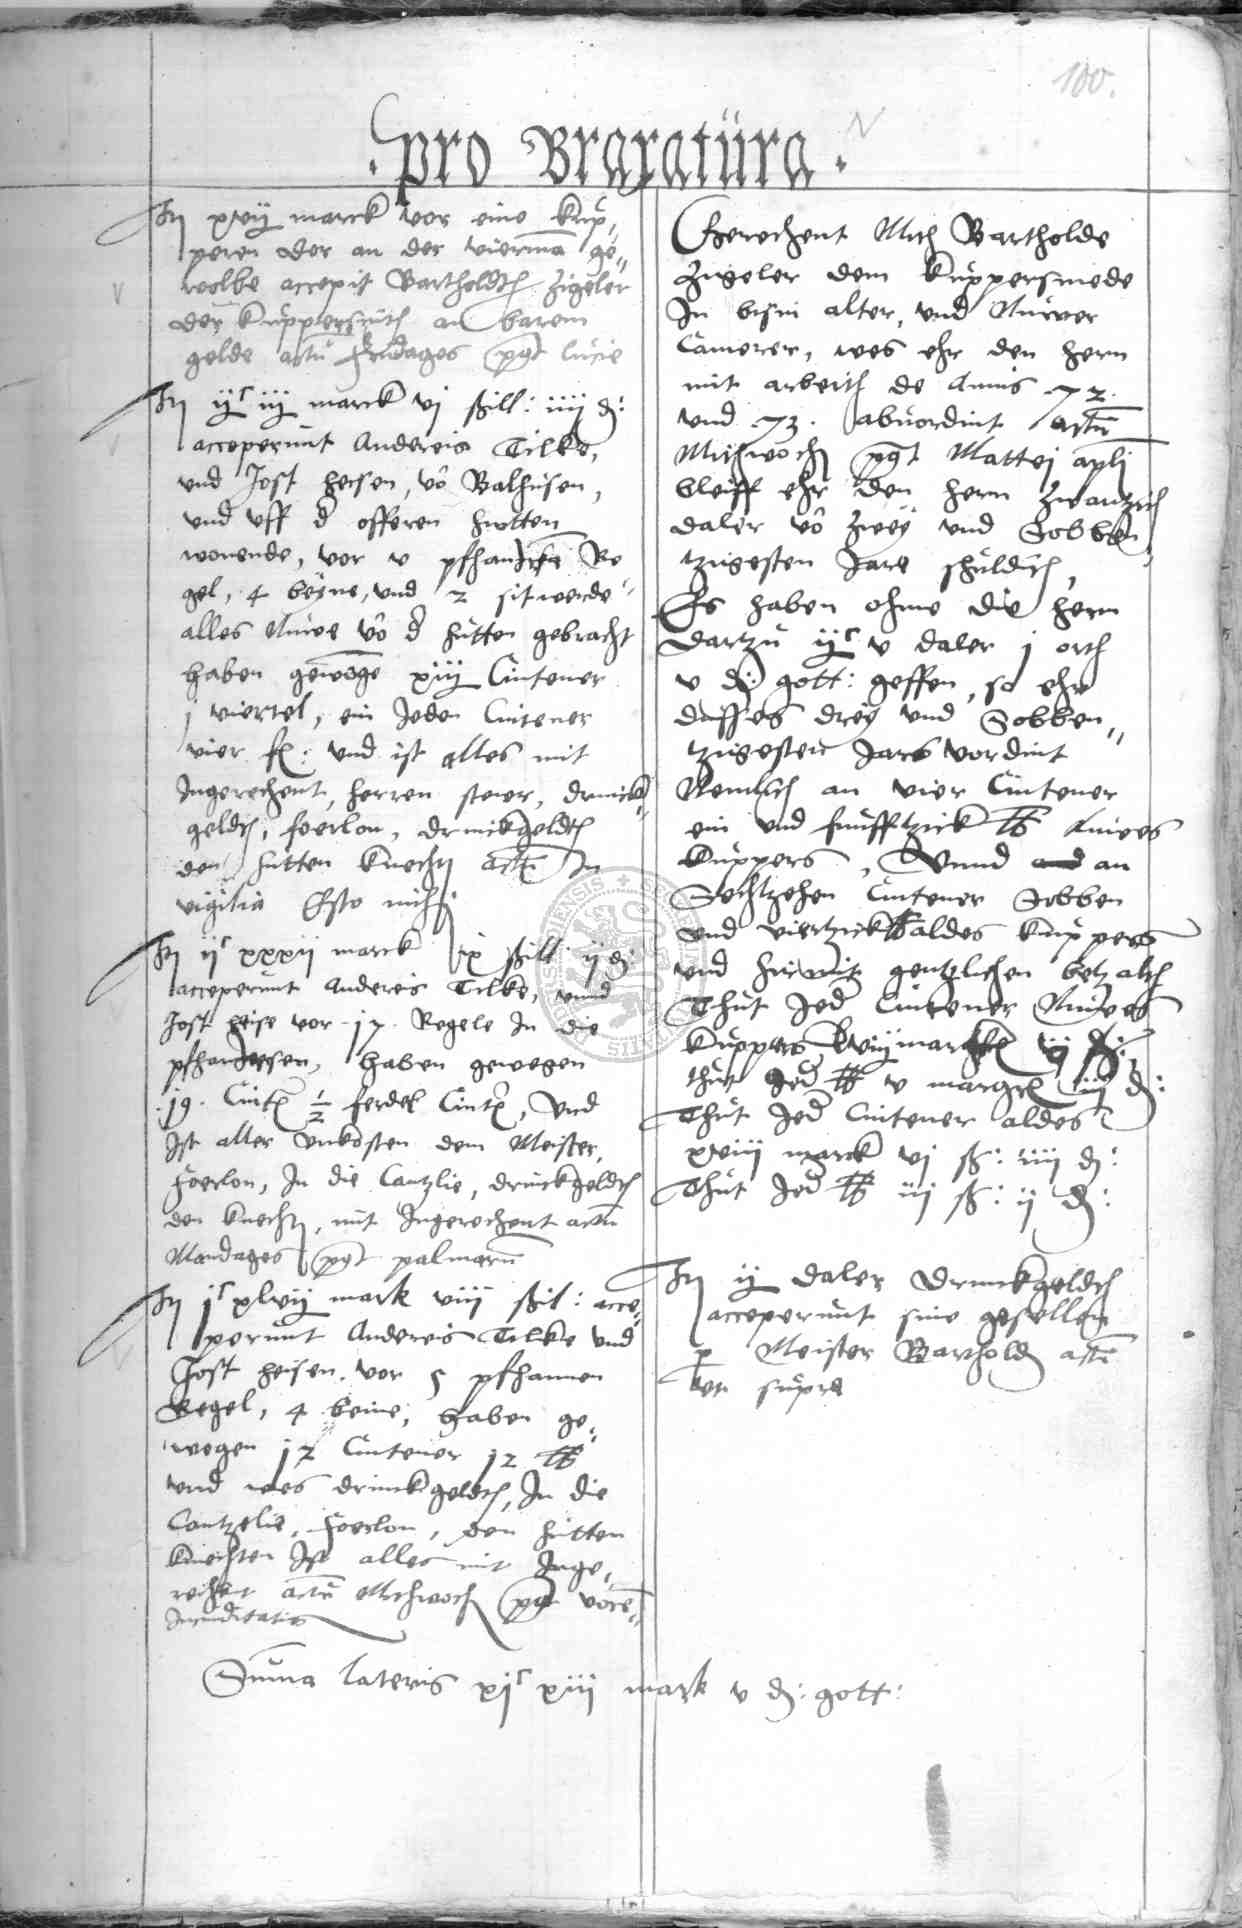 100.
pro Braxatura
It xvij marck vor eine kup,,
peren dor an der vierma ge,,
welbe accepit Bartholdt Zigeler
der kuppersmit an barem
gelde actu fridages pt lucie
It ijc iij marck vj ßill: iiij d:
acceperunt Andreis Tilke,
und Jost heisen, vo Balhusen,
und uff d offeren hutten
wonende, vor v pfhan Re
gel, 4 beyne, und 2
alles Nuwe vo d hutten gebracht
haben gewoge xiij Cintener
j viertel, ein Jeden Cintener
vier fl: und ist alles mit
Ingerechent, herren steuer, drinck
geldt, foerlon, drinckgeldt
den hutten knecht actu In
vigilia Esto mihi
It ijc xxxij marck ix ßill ij d:
acceperunt Andreis Tilke, unnd
Jost heise vor 17. Regele In die
haben gewegen
19. Cint ½ ferdel Cint, Und
Ist aller unkosten dem Meister,
foerlon, In die Cantzlie, drinckgeldt
den knecht, mit Ingerechent actu
Mandages pt palmaru
It jc xlvij mark viij ßil: acce,,
perunt Andreis Tilke und
Jost heisen. vor 5 pfhannen
Regel, 4 beine, haben ge,,
wegen 12 Cintener 12 lb
und wes drinckgeldt, In die
Cantzelie, foerlon, den hutten
knechten Ist alles mit Inge,,
rechent actu Mithwoch pt voce,,
Jucunditatis
Gerechent Mit Bartholde
Zigeler dem kuppersmede
In bisin alter, und Nuwer
Camerer, wes ehr den hern
mit arbeit de Annis 72.
und 73. abvordint actu
Mithwoch pt Mattei apli
bleiff ehr den hern zwantzich
daler vo zwey und Sobben,,
tzigesten Jare schuldich,
Es haben ohme die hern
dartzu ijc v daler j ort
v d: gott: geffen, so ehr
disses drey und Sobben,,
tzigesten Jars vordint
Nemlich an vier Cintener
ein und funfftzick lb Nuwes
kuppers, Unnd an
Sechtzehen Cintener Sobben
und viertzick lb aldes kuppers
und hirmit gentzlichen betzalt
Thut Jed Cintener Nuwes
kuppers
thut Jed lb v
Thut Jed Cintener aldes
xviij marck vj ß: iiij d:
Thut Jed lb iij ß: ij d:
It ij daler drinckgeldt
acceperunt sine gesellen
p Meister Bartholdt actu
ut supra
Suma lateris xjc xiij mark v d: gott: